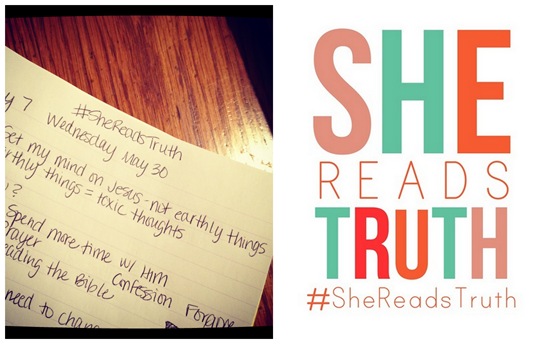 #SheReadsTruth
y 7 Wednesday May 30
Set my mind on Jesus - not earthly things
earthly things = toxic thoughts
?
Spend more time w/ Him
Prayer
Reading the Bible Confession
need to
SHE
READS
TRUTH
#SheReadsTruth